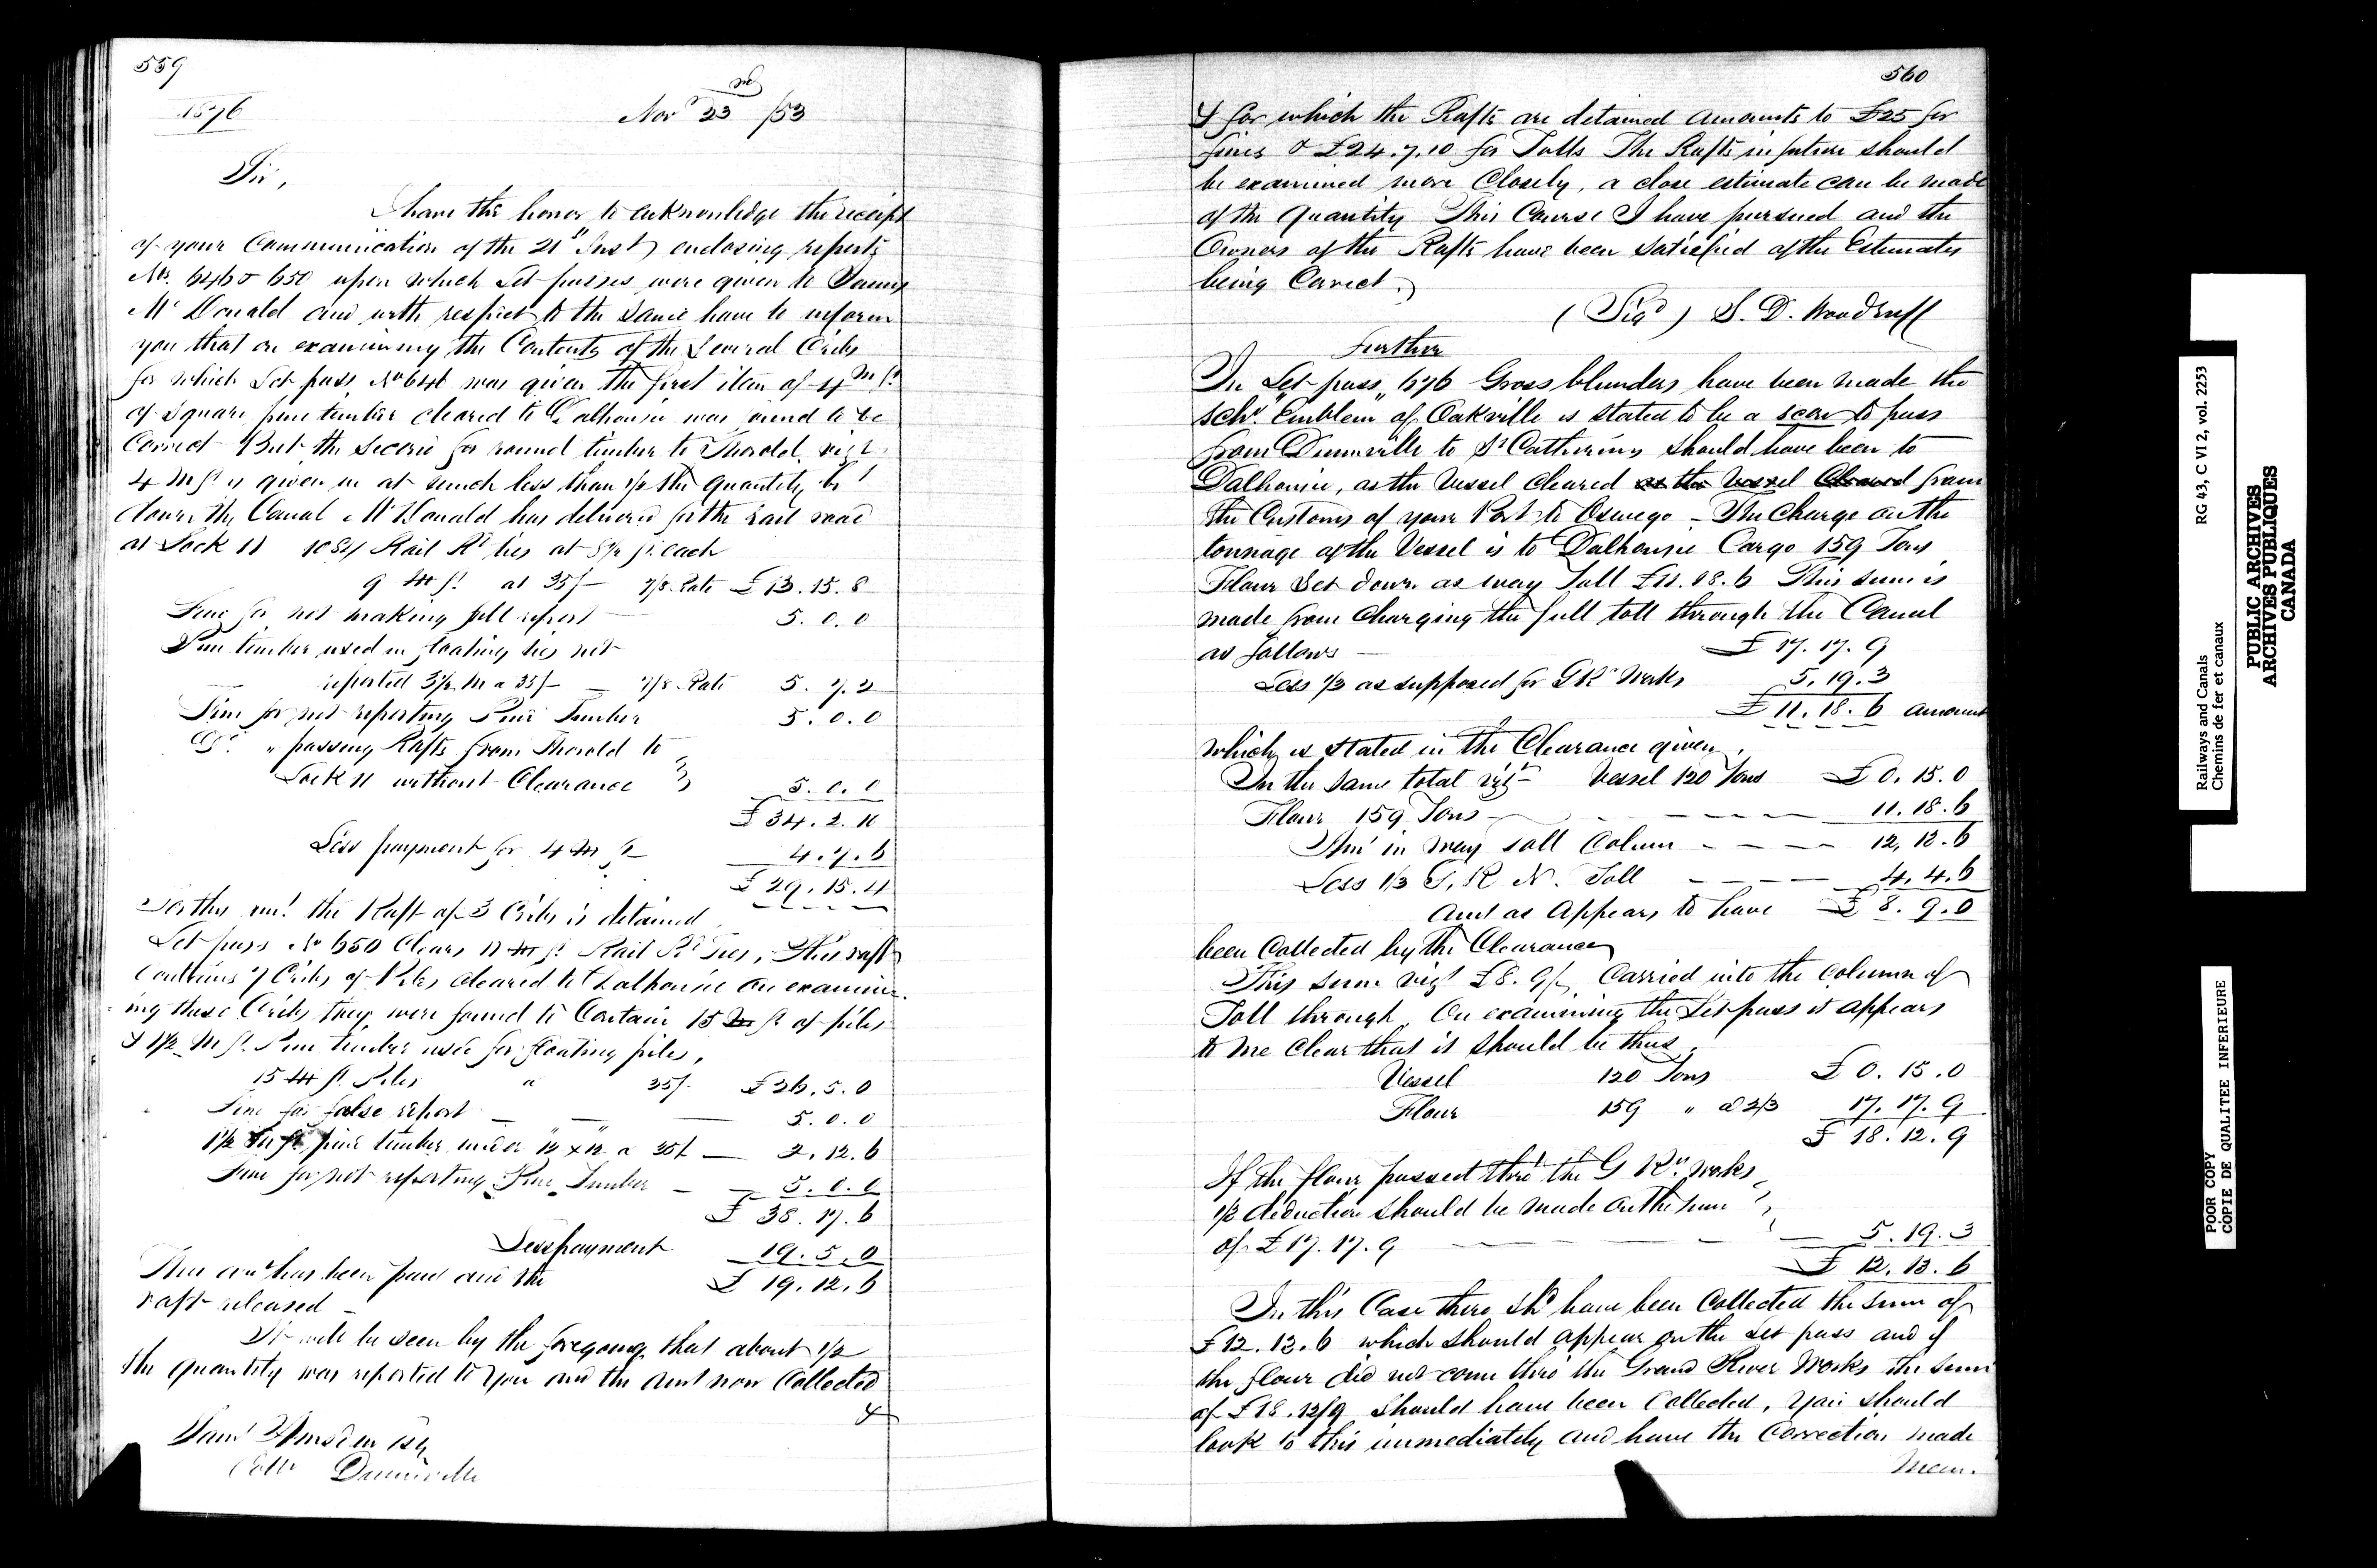 559
1576 Nov 23rd /53
Sir,
I have the honor to acknowledge the receipt
of your Communication of the 21st Inst enclosing reports
Nos. 646 & 650 upon which Let-passes were given to James
McDonald and with respect to the same have to inform
you that on examining the Contents of the Several Cribs
for which Let pass No 646 was given the first item of 4 M ft
of square pine timber cleared to Dalhousie was found to be
Correct But the second for round timber to Thorold vizt
4 M ft is given in at much less than 1/2 the quantity, he
down the Canal McDonald has delivered for the Rail road
at Lock 11 1084 Rail Rd ties at 8 1/2 ft each
9 M ft at 35/- 7/8 Rate £13.15.8
Fine for not making full report 5.0.0
Pine timber used in floating ties not
reported 3 1/2 M a 35/- 7/8 Rate 5.7.3
Fine for not reporting Pine Timber 5.0.0
Do. " passing Rafts from Thorold to
Lock 11 without Clearance 5.0.0
£34.2.11
Less payment for 4 M ft 4.7.6
£29.15.4
For this amt the Raft of 3 Cribs is detained
Let pass No 650 Clears 11 M ft Rail Rd Ties, This raft
Contains 7 Cribs of Piles cleared to Dalhousie on examin-
ing these Cribs they were found to Contain 15 M ft of piles
& 1 1/2 M ft Pine timber used for floating piles,
15 M ft Piles a 35/- £26.5.0
Fine for false report 5.0.0
1 1/2 M ft pine timber under 12 x 12 a 35/- 2.12.6
Fine for not reporting Pine Timber 5.0.0
£38.17.6
Less payment 19.5.0
This amt has been paid and the £19.12.6
raft released
It will be seen by the foregoing that about 1/2
the quantity was reported to you and the amt now Collected
&
Saml Amsden Esq
Collr Dunnville
560
& for which the Rafts are detained amounts to £25 for
fines & £24.7.10 for Tolls The Rafts in future should
be examined more Closely, a close estimate can be made
of the Quantity This Course I have pursued and the
Owners of the Rafts have been satisfied of the Estimates
being Correct.
(Sigd) S. D. Woodruff
Further
In "Let-pass" 676 Gross blunders have been made the
Schr. Emblem of Oakville is stated to be a scow to pass
from Dunnville to St Catherines should have been to
Dalhousie, as the Vessel cleared as the Vessel Cleared from
the Customs of your Port to Oswego - The Charge on the
tonnage of the Vessel is to Dalhousie Cargo 159 Tons
Flour Set down as way Toll £11.18.6 This sum is
made from Charging the full toll through the Canal
as follows £17.17.9
Less 1/3 as supposed for G Rr Works 5.19.3
£11.18.6 amount
which is stated in the Clearance given.
In the same total vizt Vessel 120 Tons £0.15.0
Flour 159 Tons 11.18.6
Amt in way Toll Column 12,13.6
Less 1/3 G. R. N. Toll 4.4.6
And as Appears to have £8.9.0
been Collected by the Clearance
This sum vizt £8.9/- Carried into the column of
Toll through. On examining the Let-pass it appears
to me Clear that it should be thus.
Vessel 120 Tons £0.15.0
Flour 159 " a 2/3 17.17.9
£18.12.9
If the flour passed thro' the G Rr. Works
1/3 deduction should be made on the sum
of £17.17.9 5.19.3
£12.13.6
In this Case there shd have been Collected the sum of
£12.13.6 which should appear on the Let pass and if
the flour did not come thro' the Grand River Works the sum
of £18.12/9 should have been Collected, You should
look to this immediately and have the Correction made
Mem.
Railways and Canals RG 43, C VI 2, vol. 2253
Chemins de fer et canaux
PUBLIC ARCHIVES
ARCHIVES PUBLIQUES
CANADA
POOR COPY
COPIE DE QUALITEE INFERIEURE